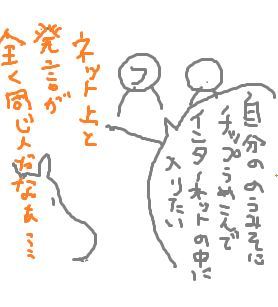 自分ののうみそに
チップうめこんで
インターネットの中に
入りたい
ネット上と
発言が
全く同じ人だなあ…